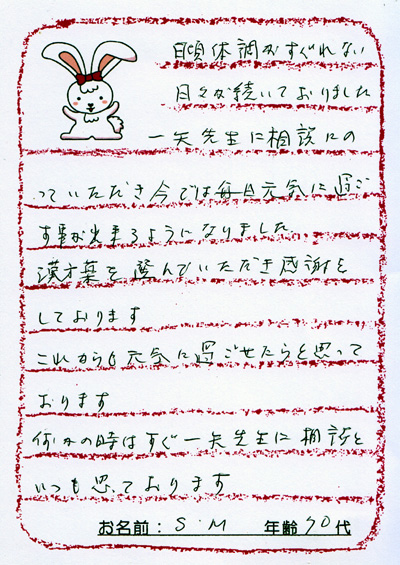 日頃体調がすぐれない
日々が続いておりました
一矢先生に相談にの
っていただき今では毎日元気に過ご
す事が出来るようになりました
漢方薬を選んでいただき感謝を
しております
これからも元気に過ごせたらと思って
おります
何かの時はすぐ一矢先生に相談と
いつも思っております
お名前：S.M 年齢70代